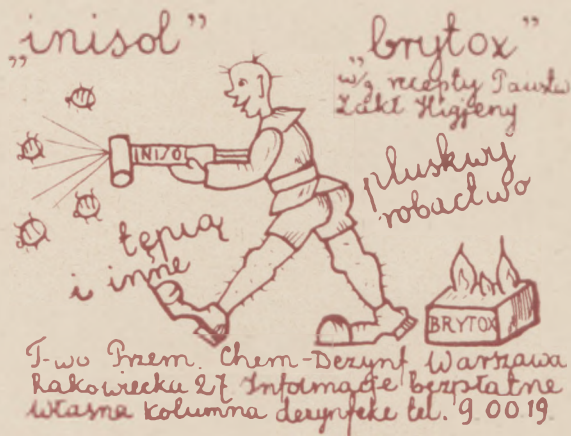 „inisol”
„brytox”
w/g recepty Państw
Zakł Higjeny
INISOL
pluskwy
robactwo
tępią
i inne
BRYTOX
T-wo Przem. Chem-Dezynf Warszawa
Rakowiecka 27 Informacje bezpłatne
własna kolumna dezynfekc tel. 9 00 19